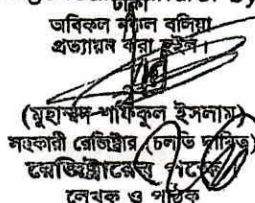 ঢাকা
অবিকল নকল বলিয়া
প্রত্যায়ন করা হইল।
(মুহাম্মদ শফিকুল ইসলাম)
সহকারী রেজিষ্ট্রার (চলতি দায়িত্ব)
রেজিষ্ট্রারের
লেখক ও পাঠক